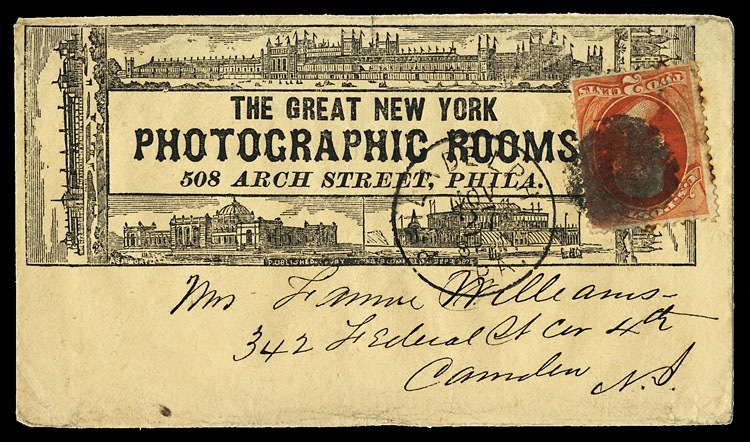 THE GREAT NEW YORK
PHOTOGRAPHIC ROOMS
508 ARCH STREET, PHILA.
PUBLISHED
TWO CENTS
Mrs Fannie Williams
342 Federal St Cor 4th
Camden
N.J.